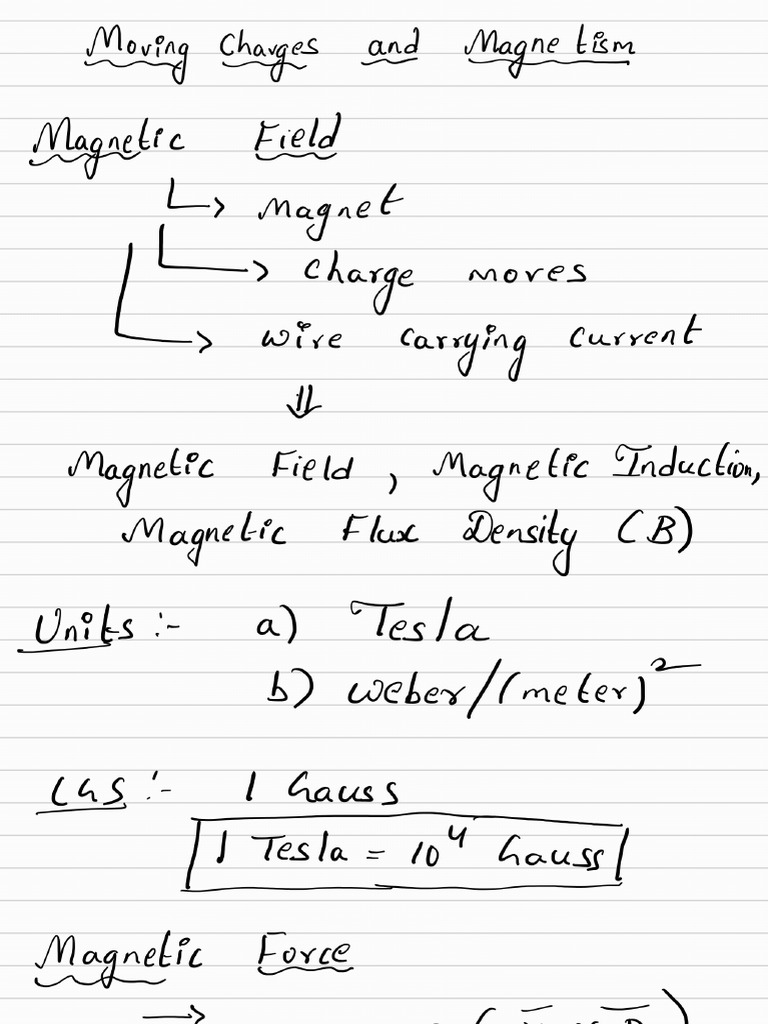 Moving Charges and Magnetism
Magnetic Field
↳ Magnet
↳ Charge moves
↳ wire carrying current
⇓
Magnetic Field, Magnetic Induction,
Magnetic Flux Density (B)
Units :- a) Tesla
b) weber/(meter)²
CGS :- 1 Gauss
1 Tesla = 10⁴ Gauss
Magnetic Force
→